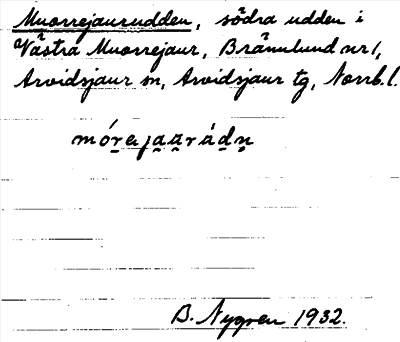 Muorrejaurudden, södra udden i
Västra Muorrejaur, Brännlund nr 1,
Arvidsjaur sn, Arvidsjaur tg, Norrb. l.
mórejaaràdn
B. Nygren 1932.